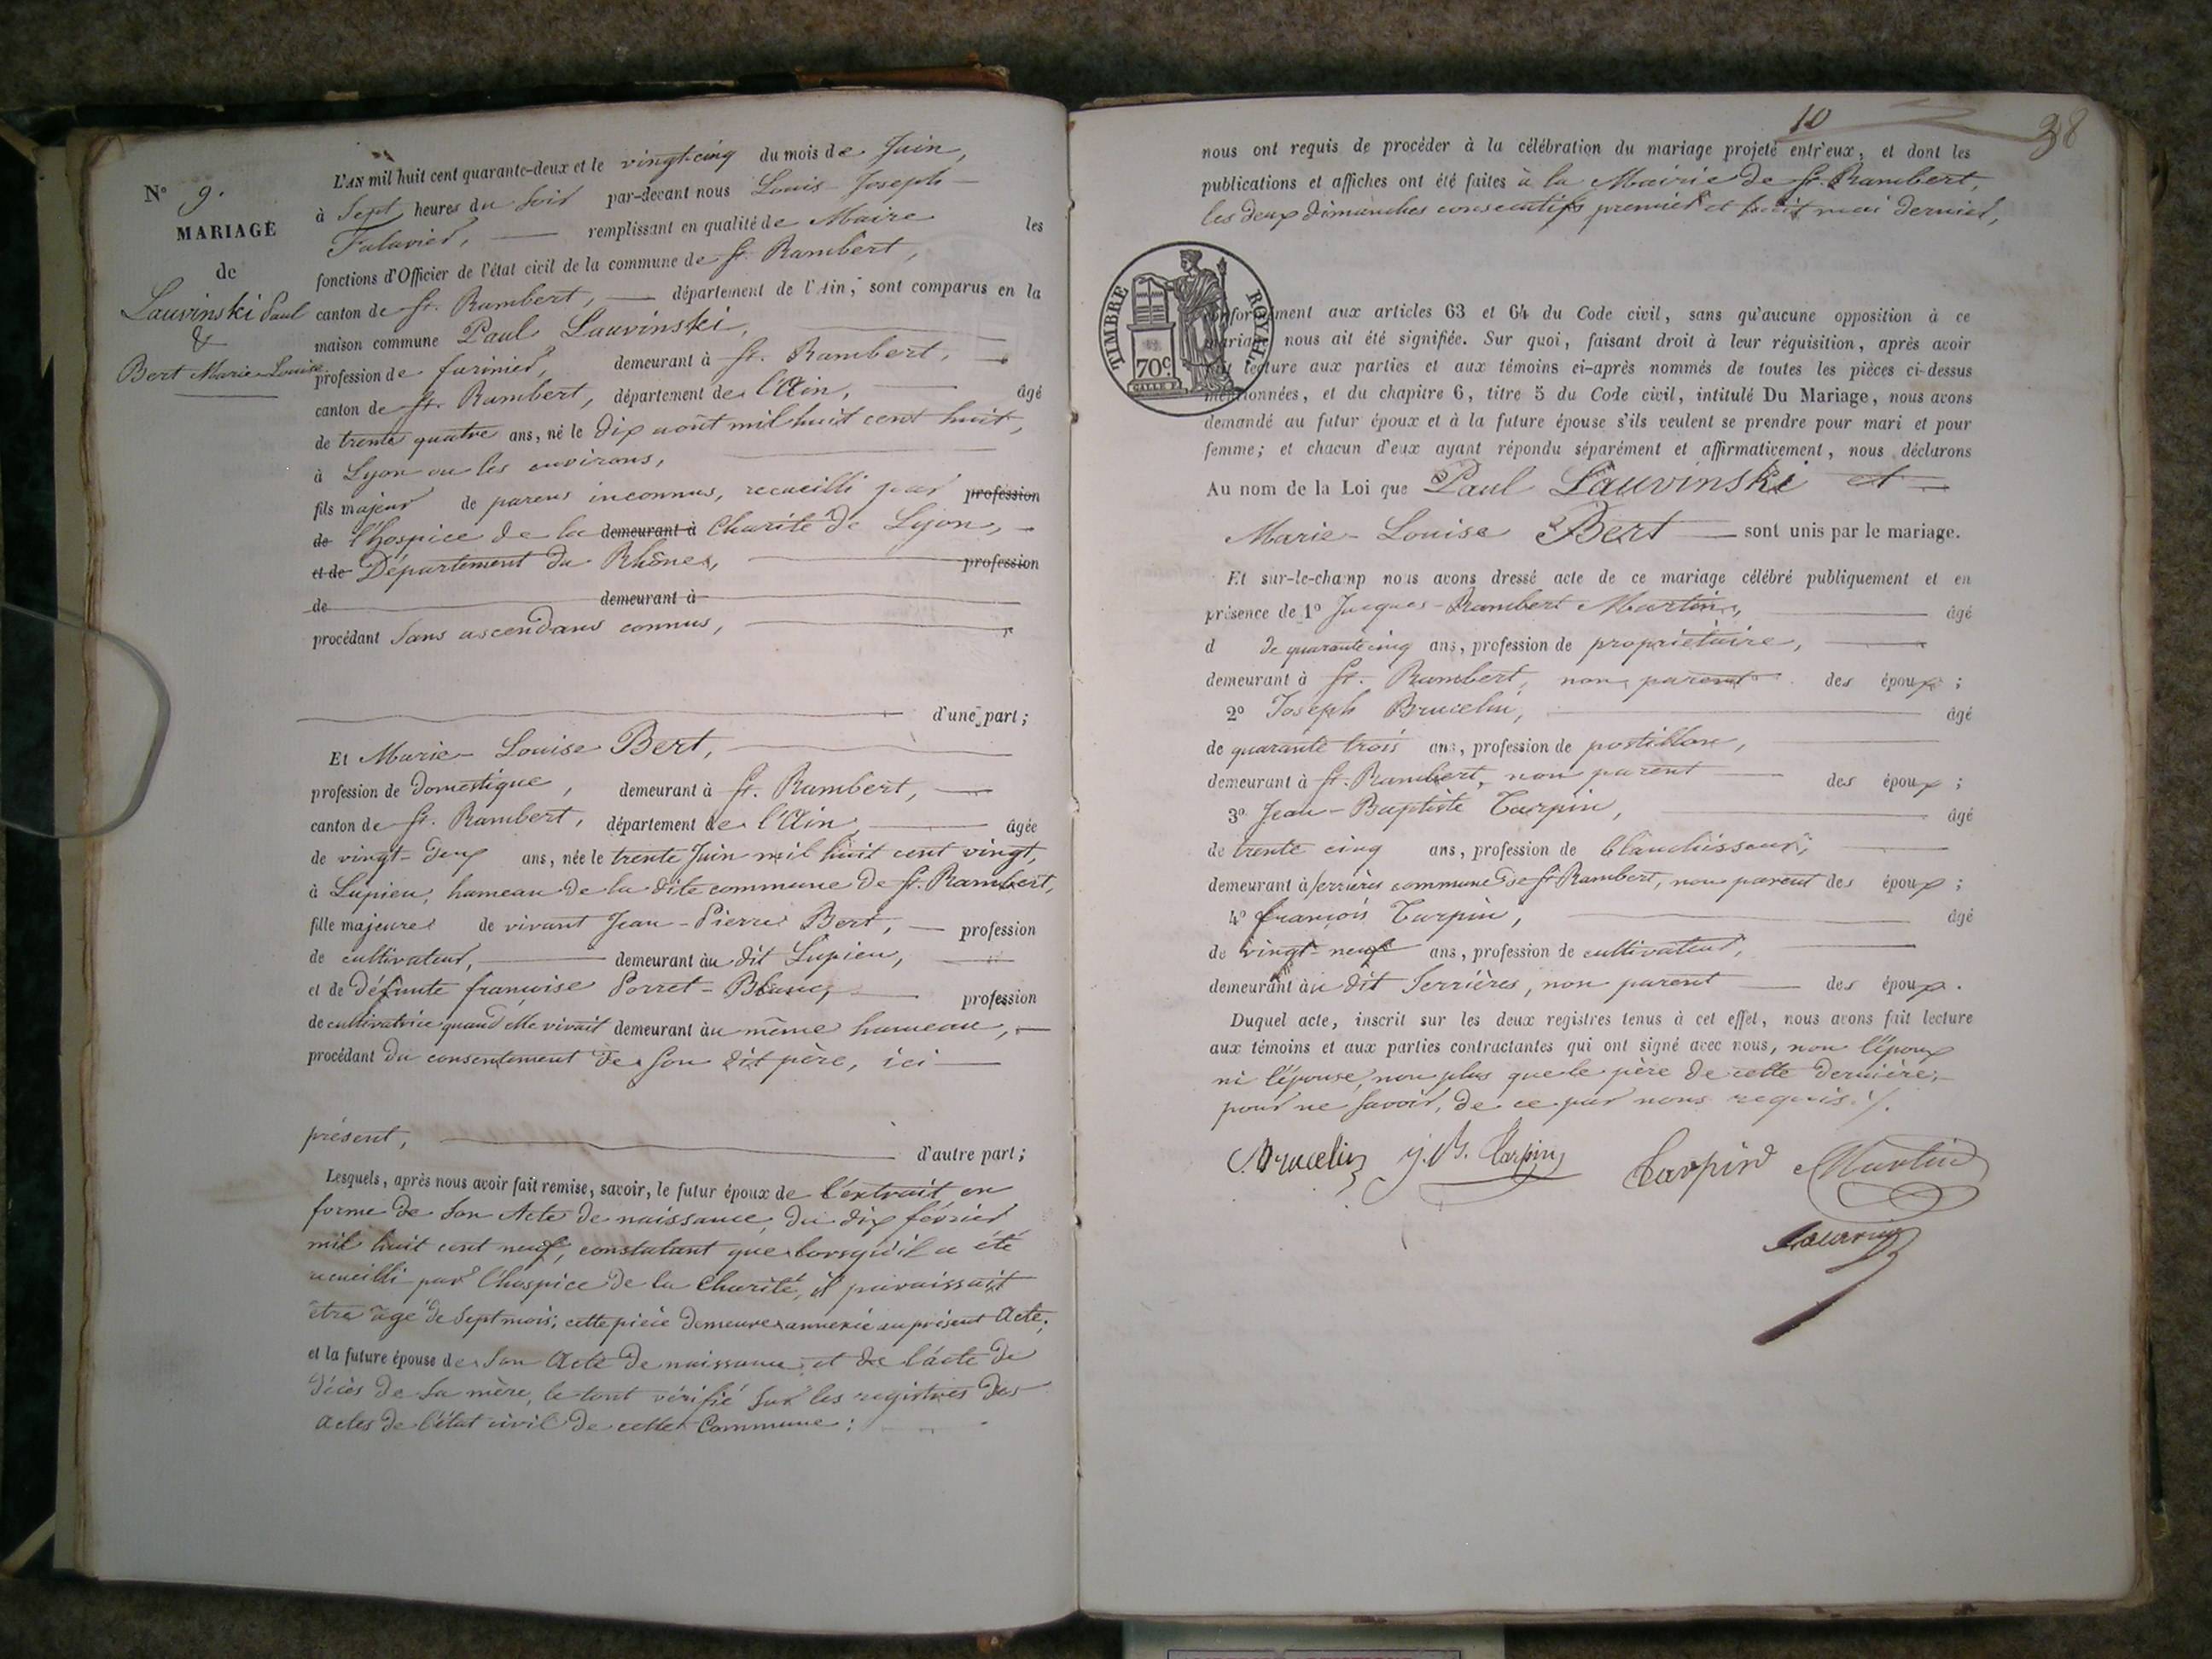 N° 9.
MARIAGE
de
Lauvinski Paul
&
Bert Marie-Louise
L'AN mil huit cent quarante-deux et le vingt-cinq du mois de Juin,
à Sept heures du soir par-devant nous Louis-Joseph
remplissant en qualité de Maire les
fonctions d'Officier de l'état civil de la commune de St. Rambert,
canton de St. Rambert, département de l'Ain, sont comparus en la
maison commune Paul Lauvinski,
profession de farinier, demeurant à St. Rambert,
canton de St. Rambert, département de l'Ain, âgé
de trente quatre ans, né le dix août mil huit cent huit,
à Lyon ou les environs,
fils majeur de parens inconnus, recueilli par profession
de l'hospice de la demeurant à Charité de Lyon,
et de Département du Rhône, profession
de demeurant à
procédant sans ascendans connus,
d'une part;
Et Marie-Louise Bert,
profession de domestique, demeurant à St. Rambert,
canton de St. Rambert, département de l'Ain, âgée
de vingt-deux ans, née le trente Juin mil huit cent vingt,
à Lupieu, hameau de la dite commune de St. Rambert,
fille majeure de vivant Jean-Pierre Bert, profession
de cultivateur, demeurant au dit Lupieu,
et de défunte françoise Porret-Blanc, profession
de cultivatrice quand elle vivait demeurant au même hameau,
procédant du consentement de son dit père, ici
présent, d'autre part;
Lesquels, après nous avoir fait remise, savoir, le futur époux de l'extrait en
forme de son Acte de naissance, du dix février
mil huit cent neuf, constatant que lorsqu'il a été
recueilli par l'hospice de la Charité, il paraissait
être âgé de sept mois; cette pièce demeure annexée au présent Acte;
et la future épouse de son Acte de naissance et de l'acte de
décès de sa mère, le tout vérifié sur les registres des
actes de l'état civil de cette Commune:
10
38
nous ont requis de procéder à la célébration du mariage projeté entr'eux, et dont les
publications et affiches ont été faites à la Mairie de St. Rambert,
les deux dimanches consécutifs premier et huit mai dernier,
TIMBRE ROYAL.
70c
conformément aux articles 63 et 64 du Code civil, sans qu'aucune opposition à ce
mariage nous ait été signifiée. Sur quoi, faisant droit à leur réquisition, après avoir
fait lecture aux parties et aux témoins ci-après nommés de toutes les pièces ci-dessus
mentionnées, et du chapitre 6, titre 5 du Code civil, intitulé Du Mariage, nous avons
demandé au futur époux et à la future épouse s'ils veulent se prendre pour mari et pour
femme; et chacun d'eux ayant répondu séparément et affirmativement, nous déclarons
Au nom de la Loi que Paul Lauvinski et
Marie-Louise Bert sont unis par le mariage.
Et sur-le-champ nous avons dressé acte de ce mariage célébré publiquement et en
présence de 1° Jacques-Rambert Martin, âgé
d de quarante cinq ans, profession de propriétaire,
demeurant à St. Rambert, non parent des époux;
2° Joseph Brucelin, âgé
de quarante trois ans, profession de postillon,
demeurant à St. Rambert, non parent des époux;
3° Jean-Baptiste Tarpin, âgé
de trente cinq ans, profession de blanchisseur,
demeurant à Serrières commune de St. Rambert, non parent des époux;
4° françois Tarpin, âgé
de vingt-neuf ans, profession de cultivateur,
demeurant au dit Serrières, non parent des époux.
Duquel acte, inscrit sur les deux registres tenus à cet effet, nous avons fait lecture
aux témoins et aux parties contractantes qui ont signé avec nous, non l'époux
ni l'épouse, non plus que le père de cette dernière,
pour ne savoir, de ce par nous requis./.
Brucelin J.B. Tarpin Tarpin Martin